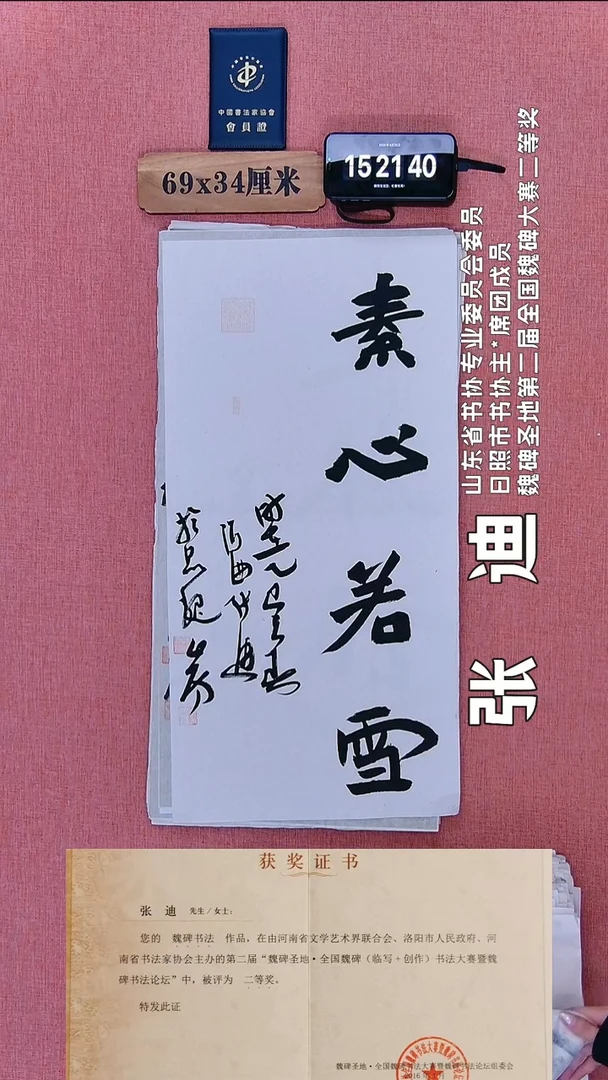 中國書法家協會
會員證
69x34厘米
15 21 40
素心若雪
山东省书协专业委员会委员
日照市书协主*席团成员
魏碑圣地第二届全国魏碑大赛二等奖
张 迪
获奖证书
张 迪 先生/女士:
您的 魏碑书法 作品，在由河南省文学艺术界联合会、洛阳市人民政府、河
南省书法家协会主办的第二届“魏碑圣地·全国魏碑（临写+创作）书法大赛暨魏
碑书法论坛”中，被评为 二等奖。
特发此证
魏碑圣地·全国魏碑书法大赛暨魏碑书法论坛组委会